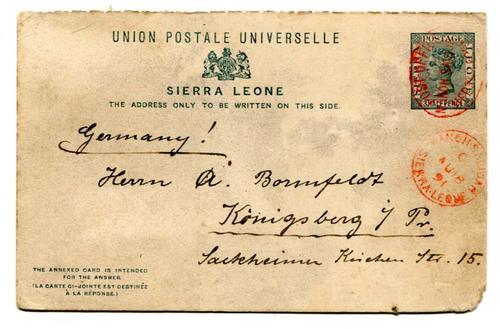 UNION POSTALE UNIVERSELLE
SIERRA LEONE
THE ADDRESS ONLY TO BE WRITTEN ON THIS SIDE.
POSTAGE
Germany!
Herrn A. Bornfeldt
Königsberg i/ Pr.
Sackheimer Kirchen Str. 15.
SIERRA-LEONE
AU 8
91
THE ANNEXED CARD IS INTENDED
FOR THE ANSWER.
(LA CARTE CI-JOINTE EST DESTINÉE
À LA RÉPONSE.)